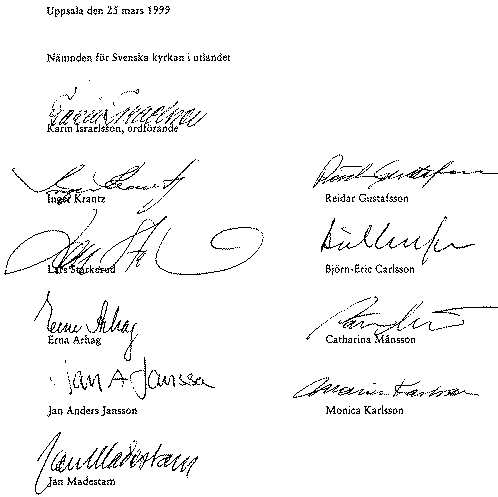 Uppsala den 25 mars 1999
Nämnden för Svenska kyrkan i utlandet
Karin Israelsson
Karin Israelsson, ordförande
Inger Krantz
Inger Krantz
Reidar Gustafsson
Reidar Gustafsson
Lars Starkerud
Björn-Eric Carlsson
Erna Arhag
Erna Arhag
Catharina Månsson
Jan A Jansson
Jan Anders Jansson
Monica Karlsson
Jan Madestam
Jan Madestam